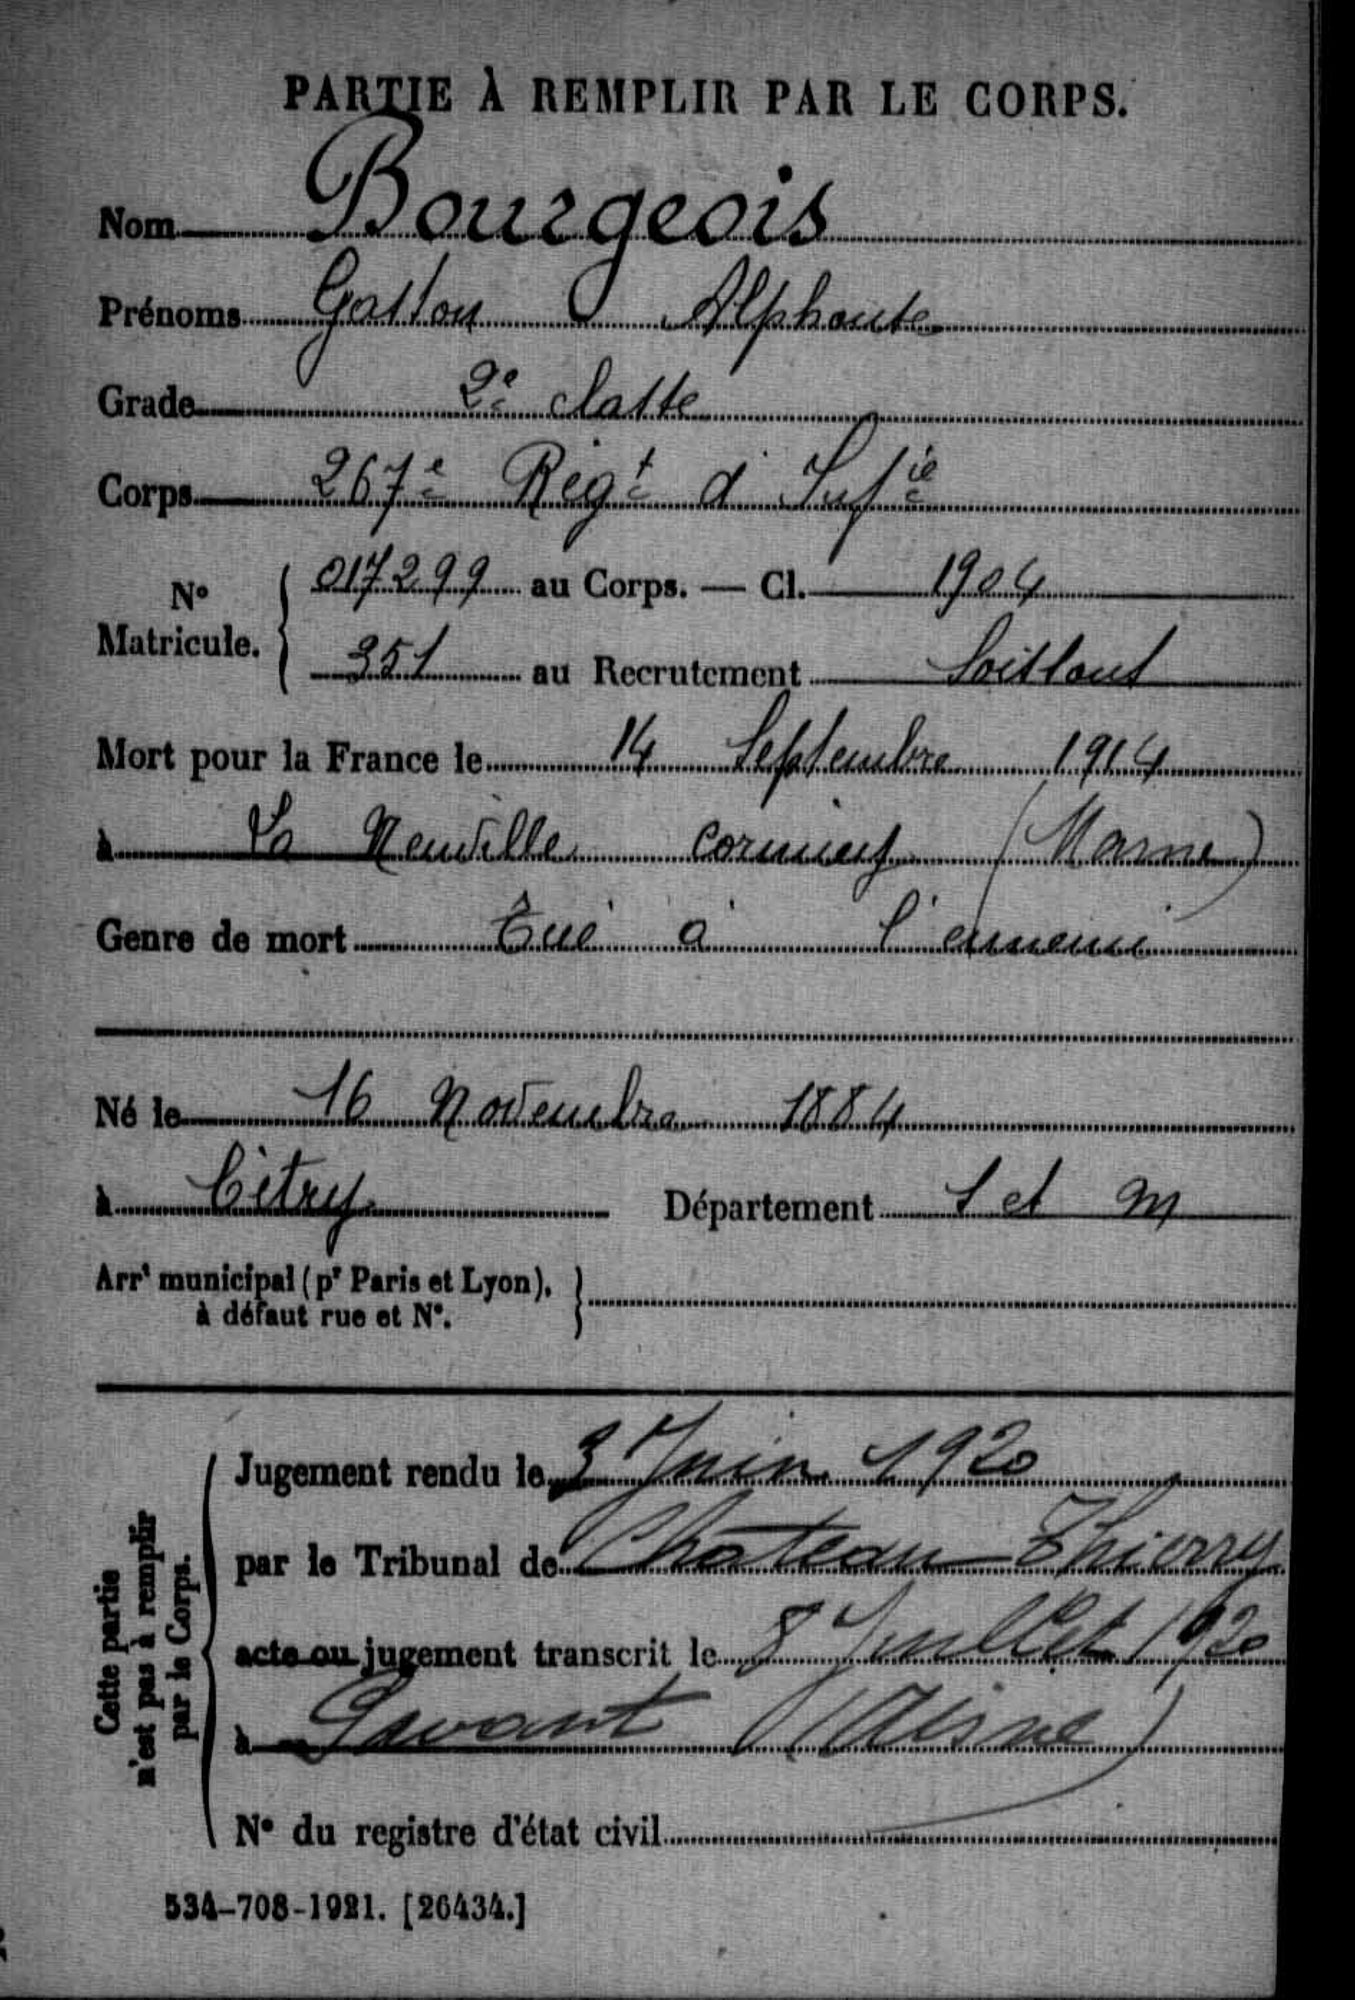 PARTIE À REMPLIR PAR LE CORPS.
Nom Bourgeois
Prénoms Gaston Alphonse
Grade 2e classe
Corps 267e Régt d'Infie
No Matricule. 017299 au Corps. — Cl. 1904
351 au Recrutement Soissons
Mort pour la France le 14 Septembre 1914
à La Neuville Cormicy (Marne)
Genre de mort Tué à l'ennemi
Né le 16 Novembre 1884
à Citry Département S et M
Arrt municipal (pr Paris et Lyon),
à défaut rue et No.
Cette partie
n'est pas à remplir
par le Corps.
Jugement rendu le 3 Juin 1920
par le Tribunal de Château-Thierry
acte ou jugement transcrit le 8 Juillet 1920
à Pavant (Aisne)
No du registre d'état civil
534-708-1921. [26434.]